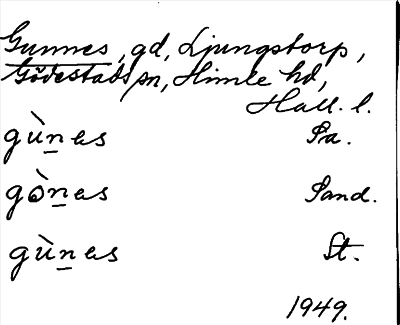 Gunnes, gd, Ljungstorp,
Gödestads sn, Himle hd,
Hall. l.
gùn̲as Pa.
gòn̲as Sand.
gùn̲as St.
1949.